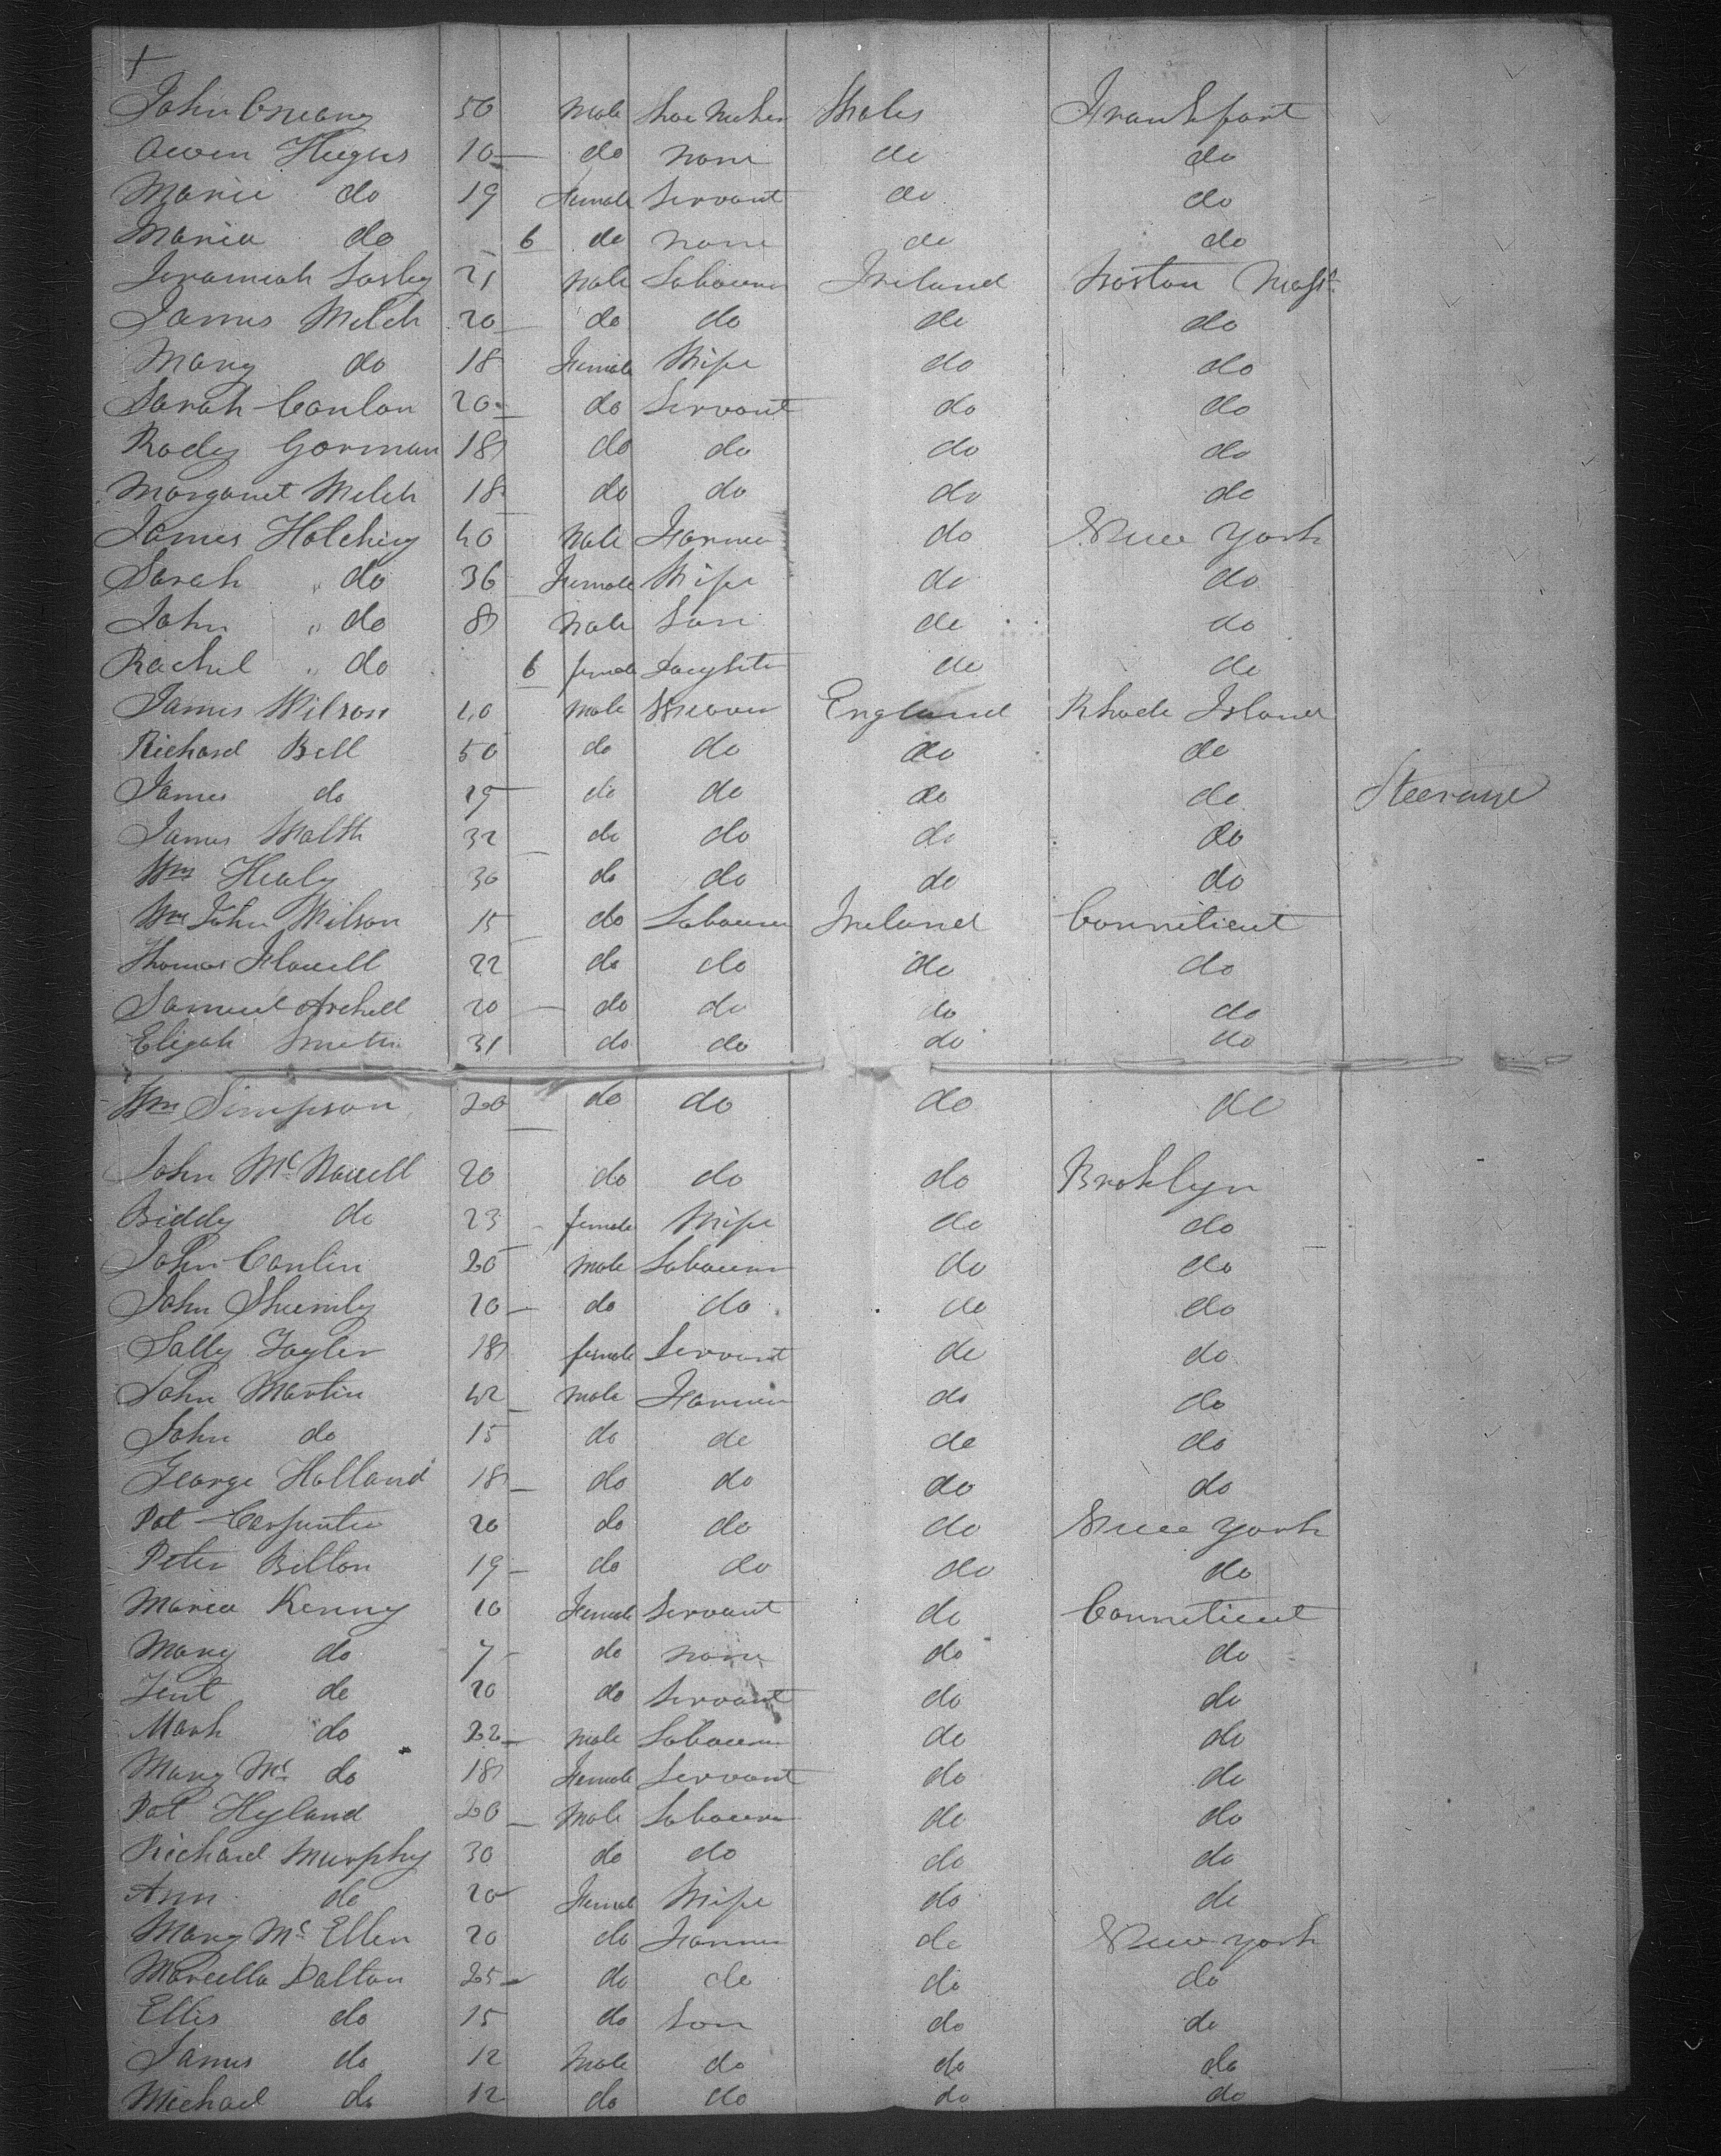 +
John 50 Male Shoe Maker Wales Frankfort
Owen Hughs 10 do none do do
Maria do 19 Female Servant do do
Maria do 6 do none do do
Jeramiah 21 Male Labourer Ireland Boston Mass
James Welch 20 do do do do
Mary do 18 Female Wife do do
Sarah Conlon 20 do Servant do do
Rody Gorman 18 do do do do
Margaret Welch 18 do do do do
James 40 Male Farmer do New York
Sarah " do 36 Female Wife do do
John " do 8 Male Son do do
Rachel " do 6 female Daughter do do
James Wilson 40 Male Weaver England Rhode Island
Richard Bell 50 do do do do
James do 19 do do do do Steerage
James 32 do do do do
Wm Healy 30 do do do do
Wm John Wilson 15 do Labourer Ireland Conneticut
Thomas 22 do do do do
Samuel 20 do do do do
Elijah Smith 31 do do do do
Wm Simpson 20 do do do do
John 20 do do do Broklyn
Biddy do 23 female Wife do do
John Conlin 20 Male Labourer do do
John 20 do do do do
Sally Tayler 18 female Servant do do
John Martin 42 Male Farmer do do
John do 15 do do do do
George Holland 18 do do do do
Pat Carpenter 20 do do do New York
Peter 19 do do do do
Maria Kenny 10 Female Servant do Conneticut
Mary do 7 do none do do
do 20 do Servant do do
Mark do 22 Male Labourer do do
Mary Mc do 18 Female Servant do do
Pat Hyland 20 Male Labourer do do
Richard Murphy 30 do do do do
Ann do 20 Female Wife do do
Mary Mc Ellen 20 do Farmer do New York
Marcella Dalton 25 do do do do
Ellis do 15 do Son do do
James do 12 Male do do do
Michael do 12 do do do do